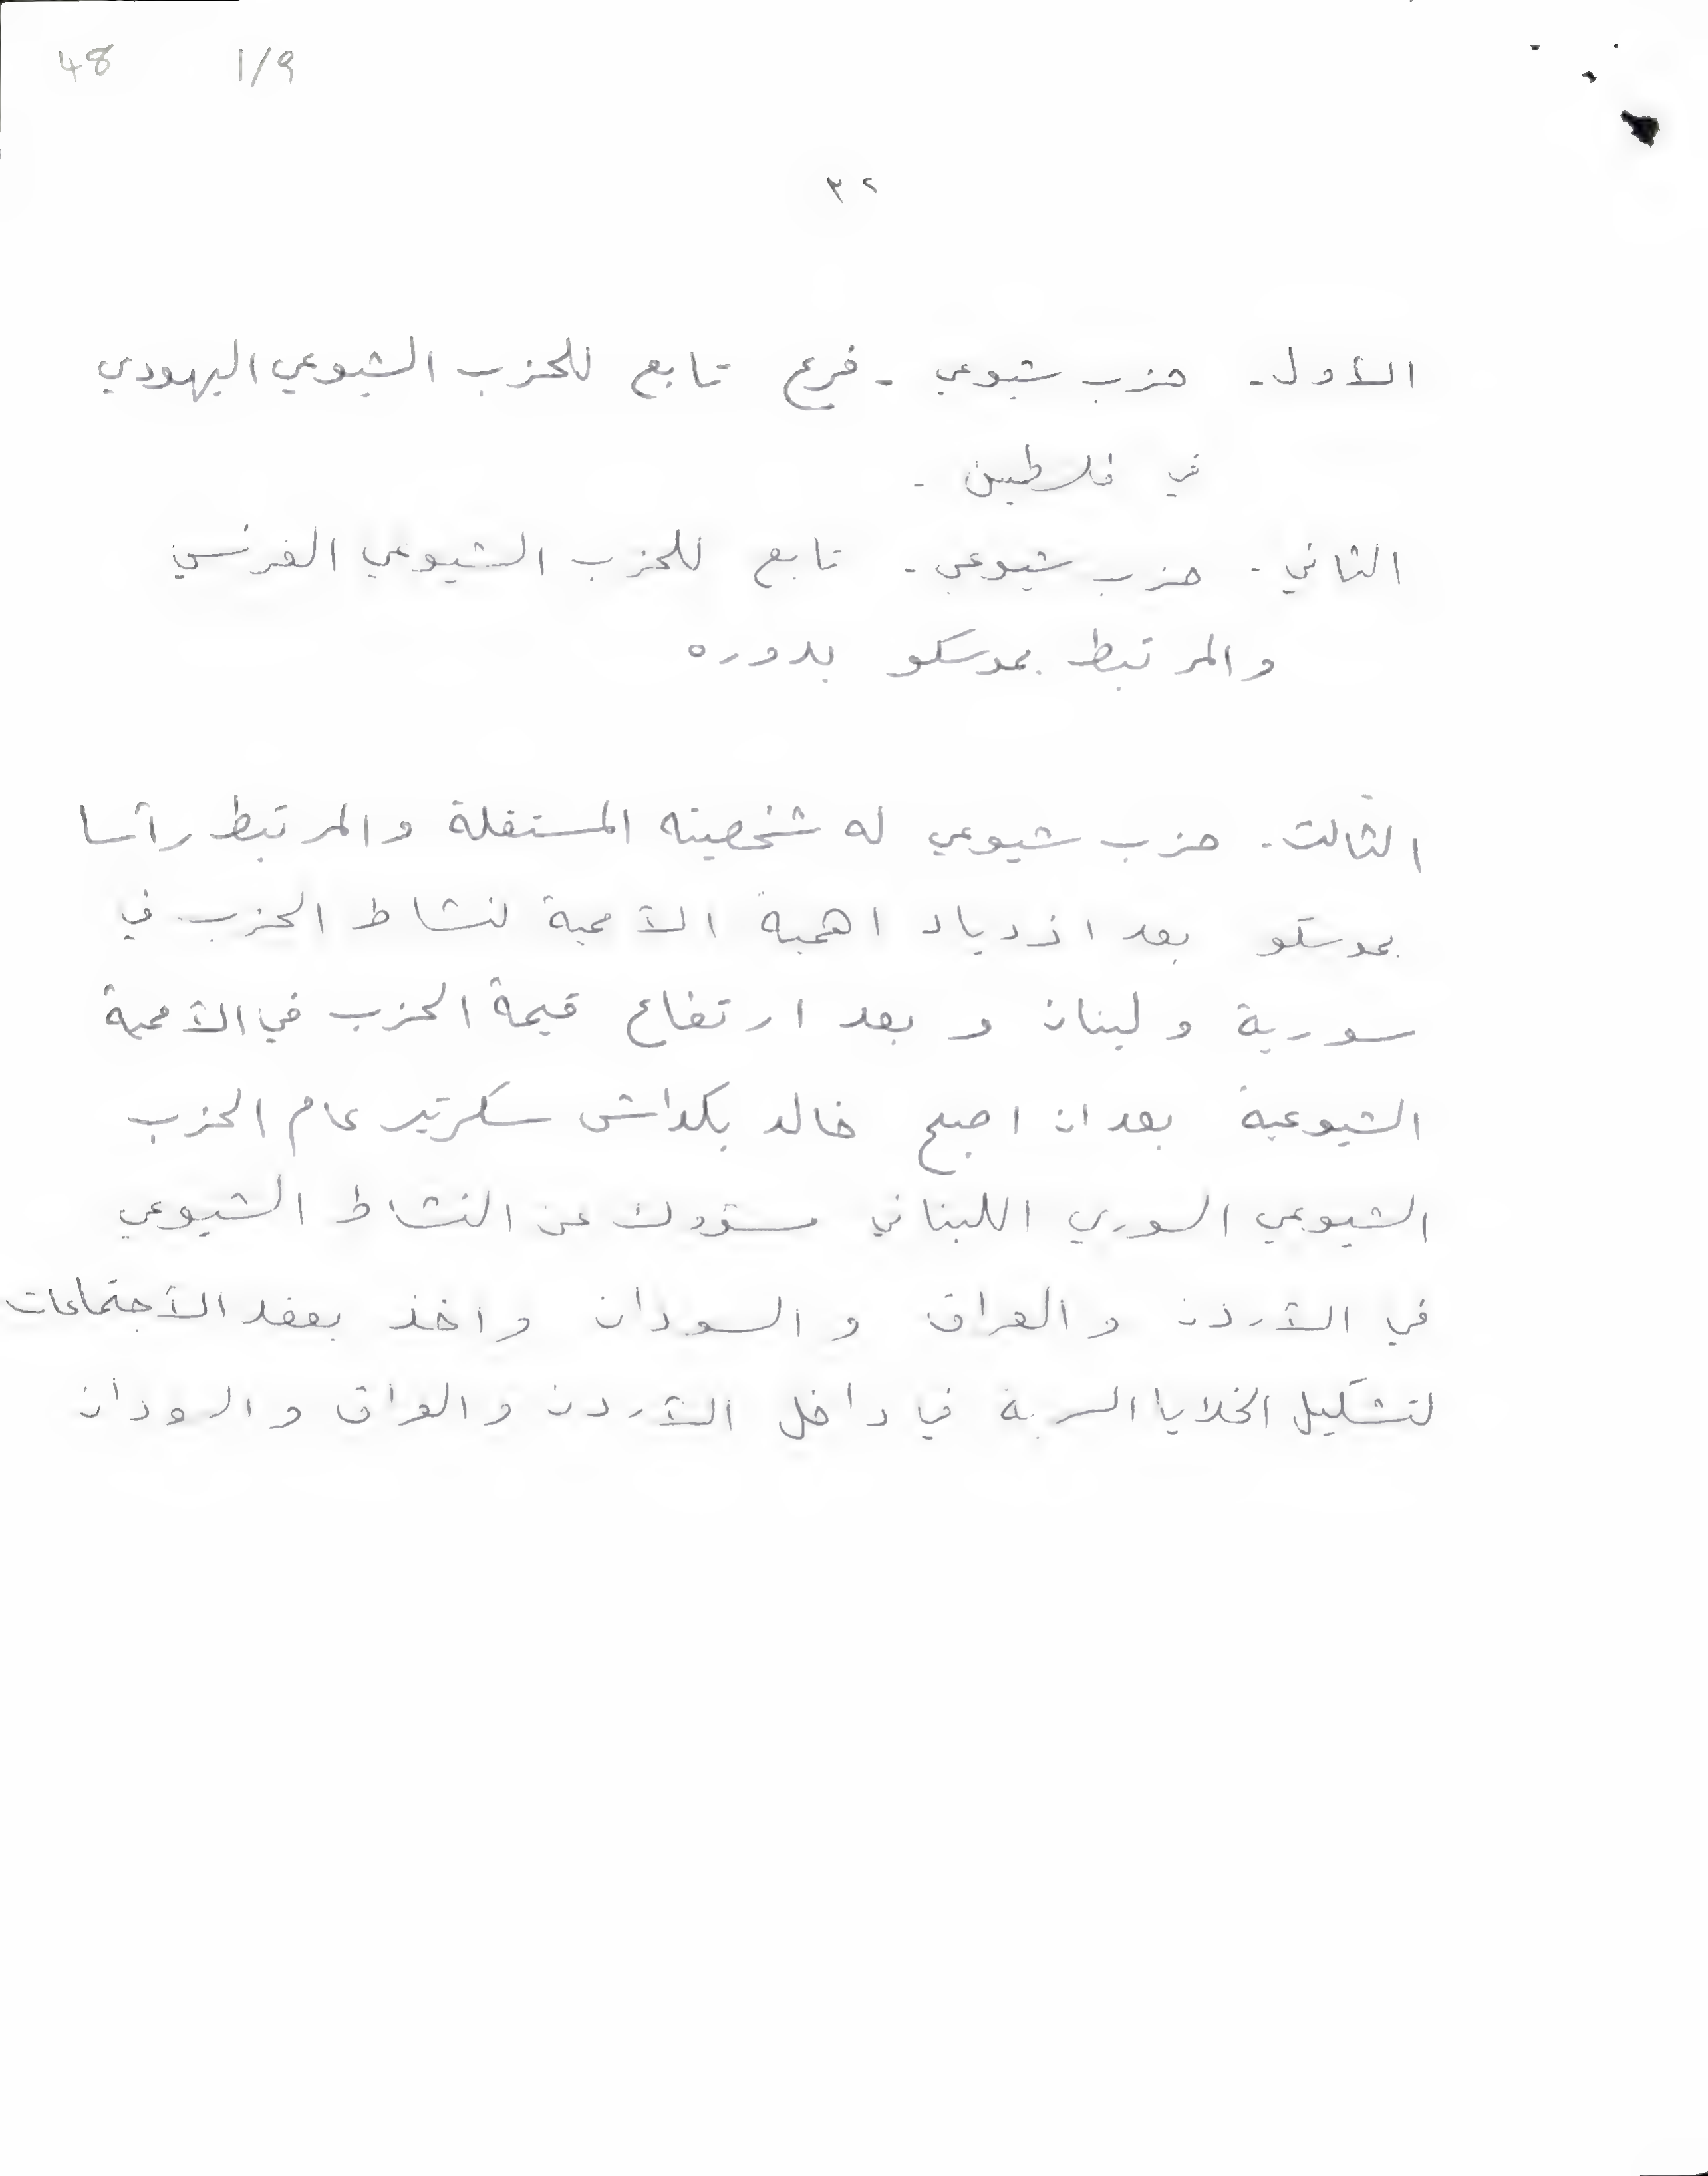 48 1/9
٣٢
الأول - حزب شيوعي - فرع تابع للحزب الشيوعي اليهودي
في فلاطين -
الثاني - حزب شيوعي - تابع للحزب الشيوعي الفرنسي
والمرتبط بموسكو بدوره
الثالث - حزب شيوعي له شخصيته المستقلة والمرتبط رأسا
بموسكو بعد ازدياد اهمية الأممية لنشاط الحزب في
سورية ولبنان وبعد ارتفاع قيمة الحزب في الأممية
الشيوعية بعد ان اصبح خالد بكداش سكرتير عام الحزب
الشيوعي السوري اللبناني مسؤول عن النشاط الشيوعي
في الأردن والعراق والسودان واخذ بعقد الأجتماعات
لتشكيل الخلايا السرية في داخل الأردن والعراق والسودان